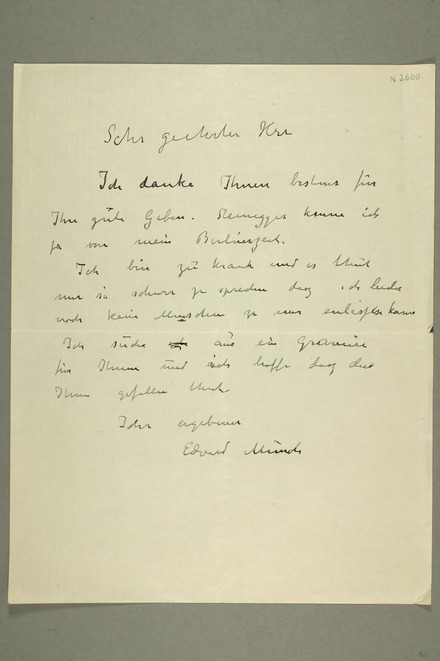 N 2600
Sehr geehrter Herr
Ich danke Ihnen bestens für
Ihre gute Gaben. kenne ich
ja von mein Berlinerzeit.
Ich bin zu krank und es thut
mir so schwer zu sprechen daß ich leider
noch keine Menschen zu mir kann
Ich suche aus ein Gravüre
für Ihnen und ich hoffe daß das
Ihnen gefallen thut
Ihr ergebener
Edvard Munch